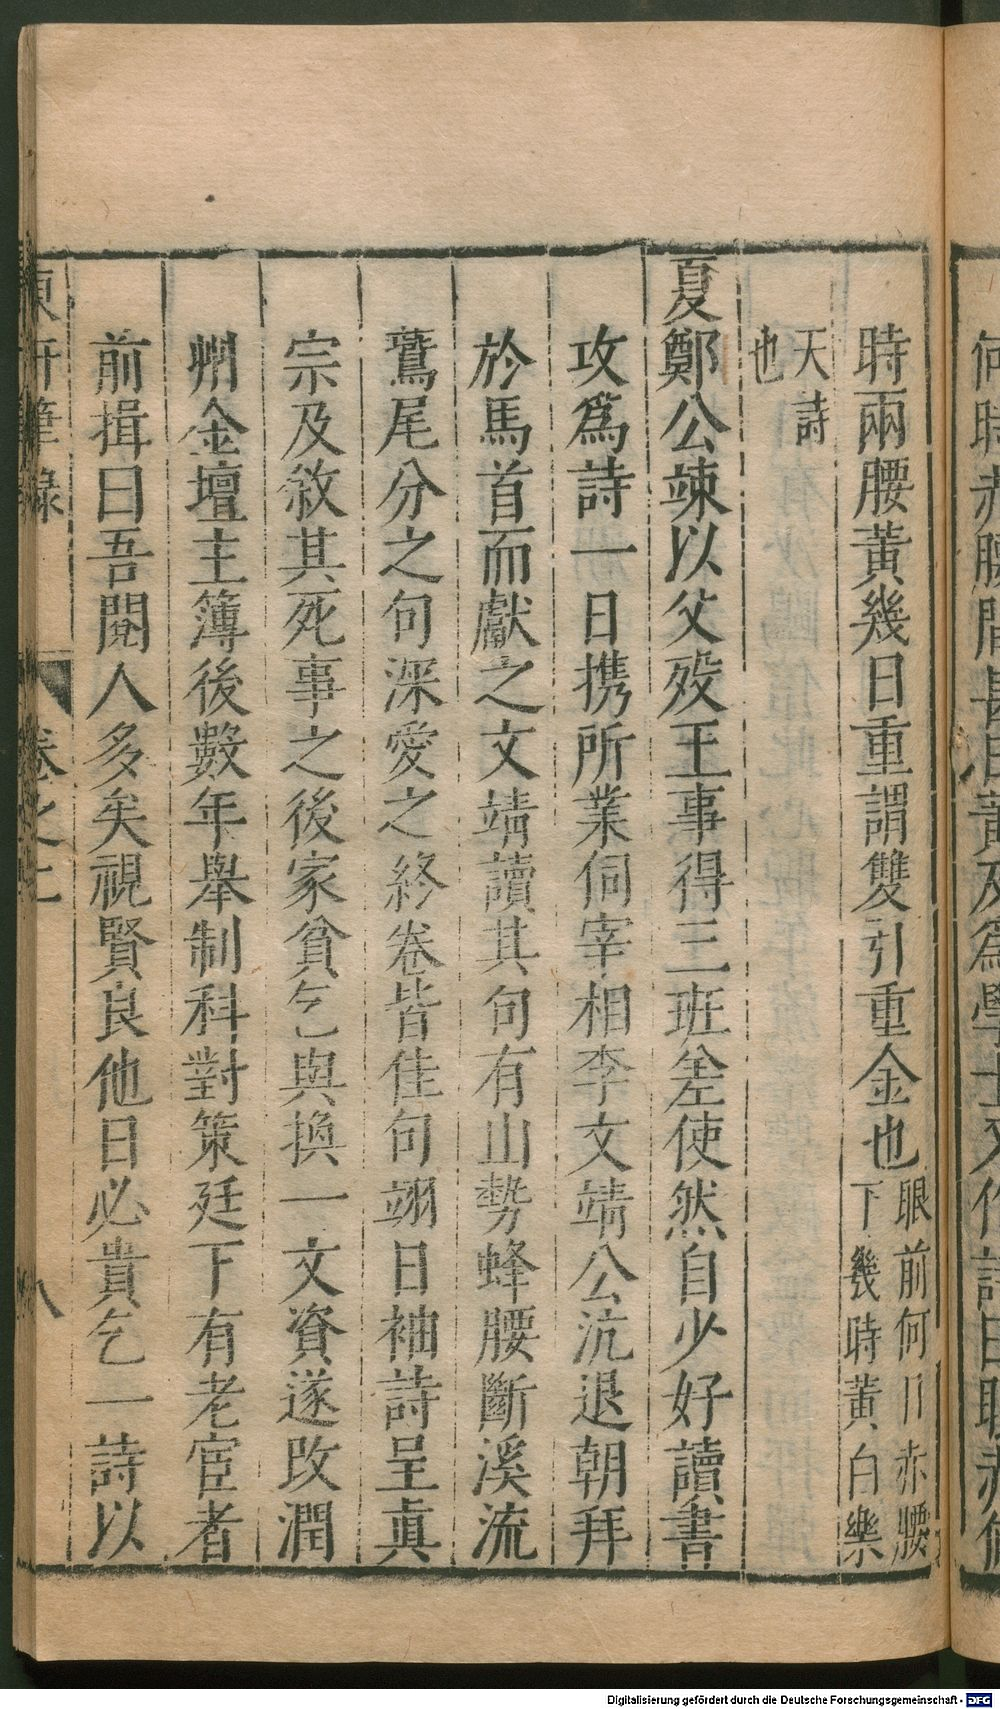 時兩腰黃幾日重謂雙引重金也眼前何日赤腰
下幾時黃白樂
天詩
也
夏鄭公竦以父歿王事得三班差使然自少好讀書
攻爲詩一日携所業伺宰相李文靖公沆退朝拜
於馬首而獻之文靖讀其句有山勢蜂腰斷溪流
鷰尾分之句深愛之終卷皆佳句翊日袖詩呈眞
宗及敘其死事之後家貧乞與換一文資遂改潤
州金壇主簿後數年舉制科對策廷下有老宦者
前揖曰吾閱人多矣視賢良他日必貴乞一詩以
東軒筆錄
卷之二
八
Digitalisierung gefördert durch die Deutsche Forschungsgemeinschaft - DFG